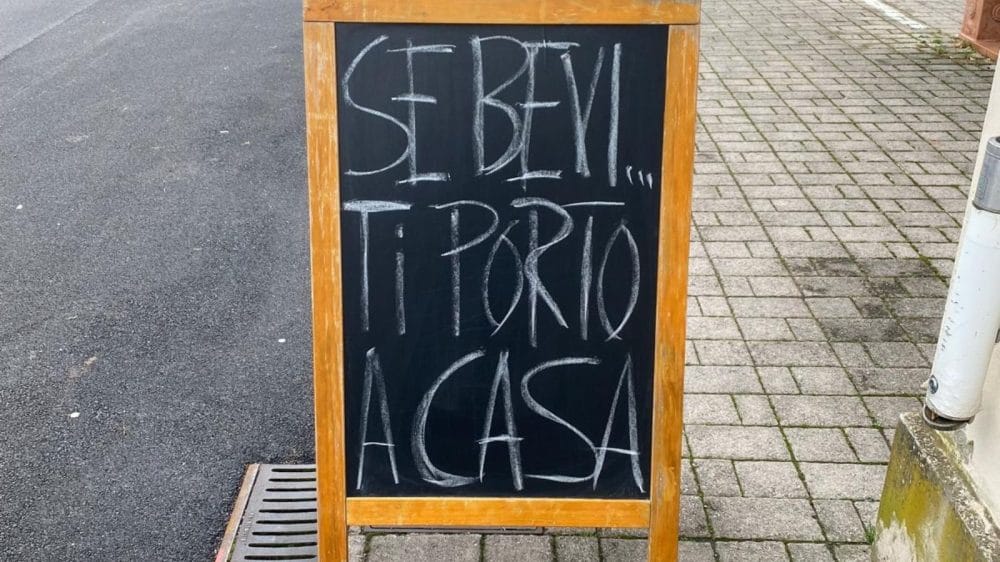 SE BEVI...
Ti PORTO
A CASA